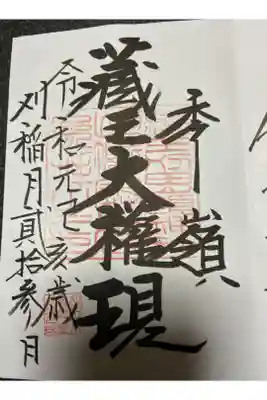 秀嶺
蔵王大権現
令和元己亥歳
刈稲月貳拾参日